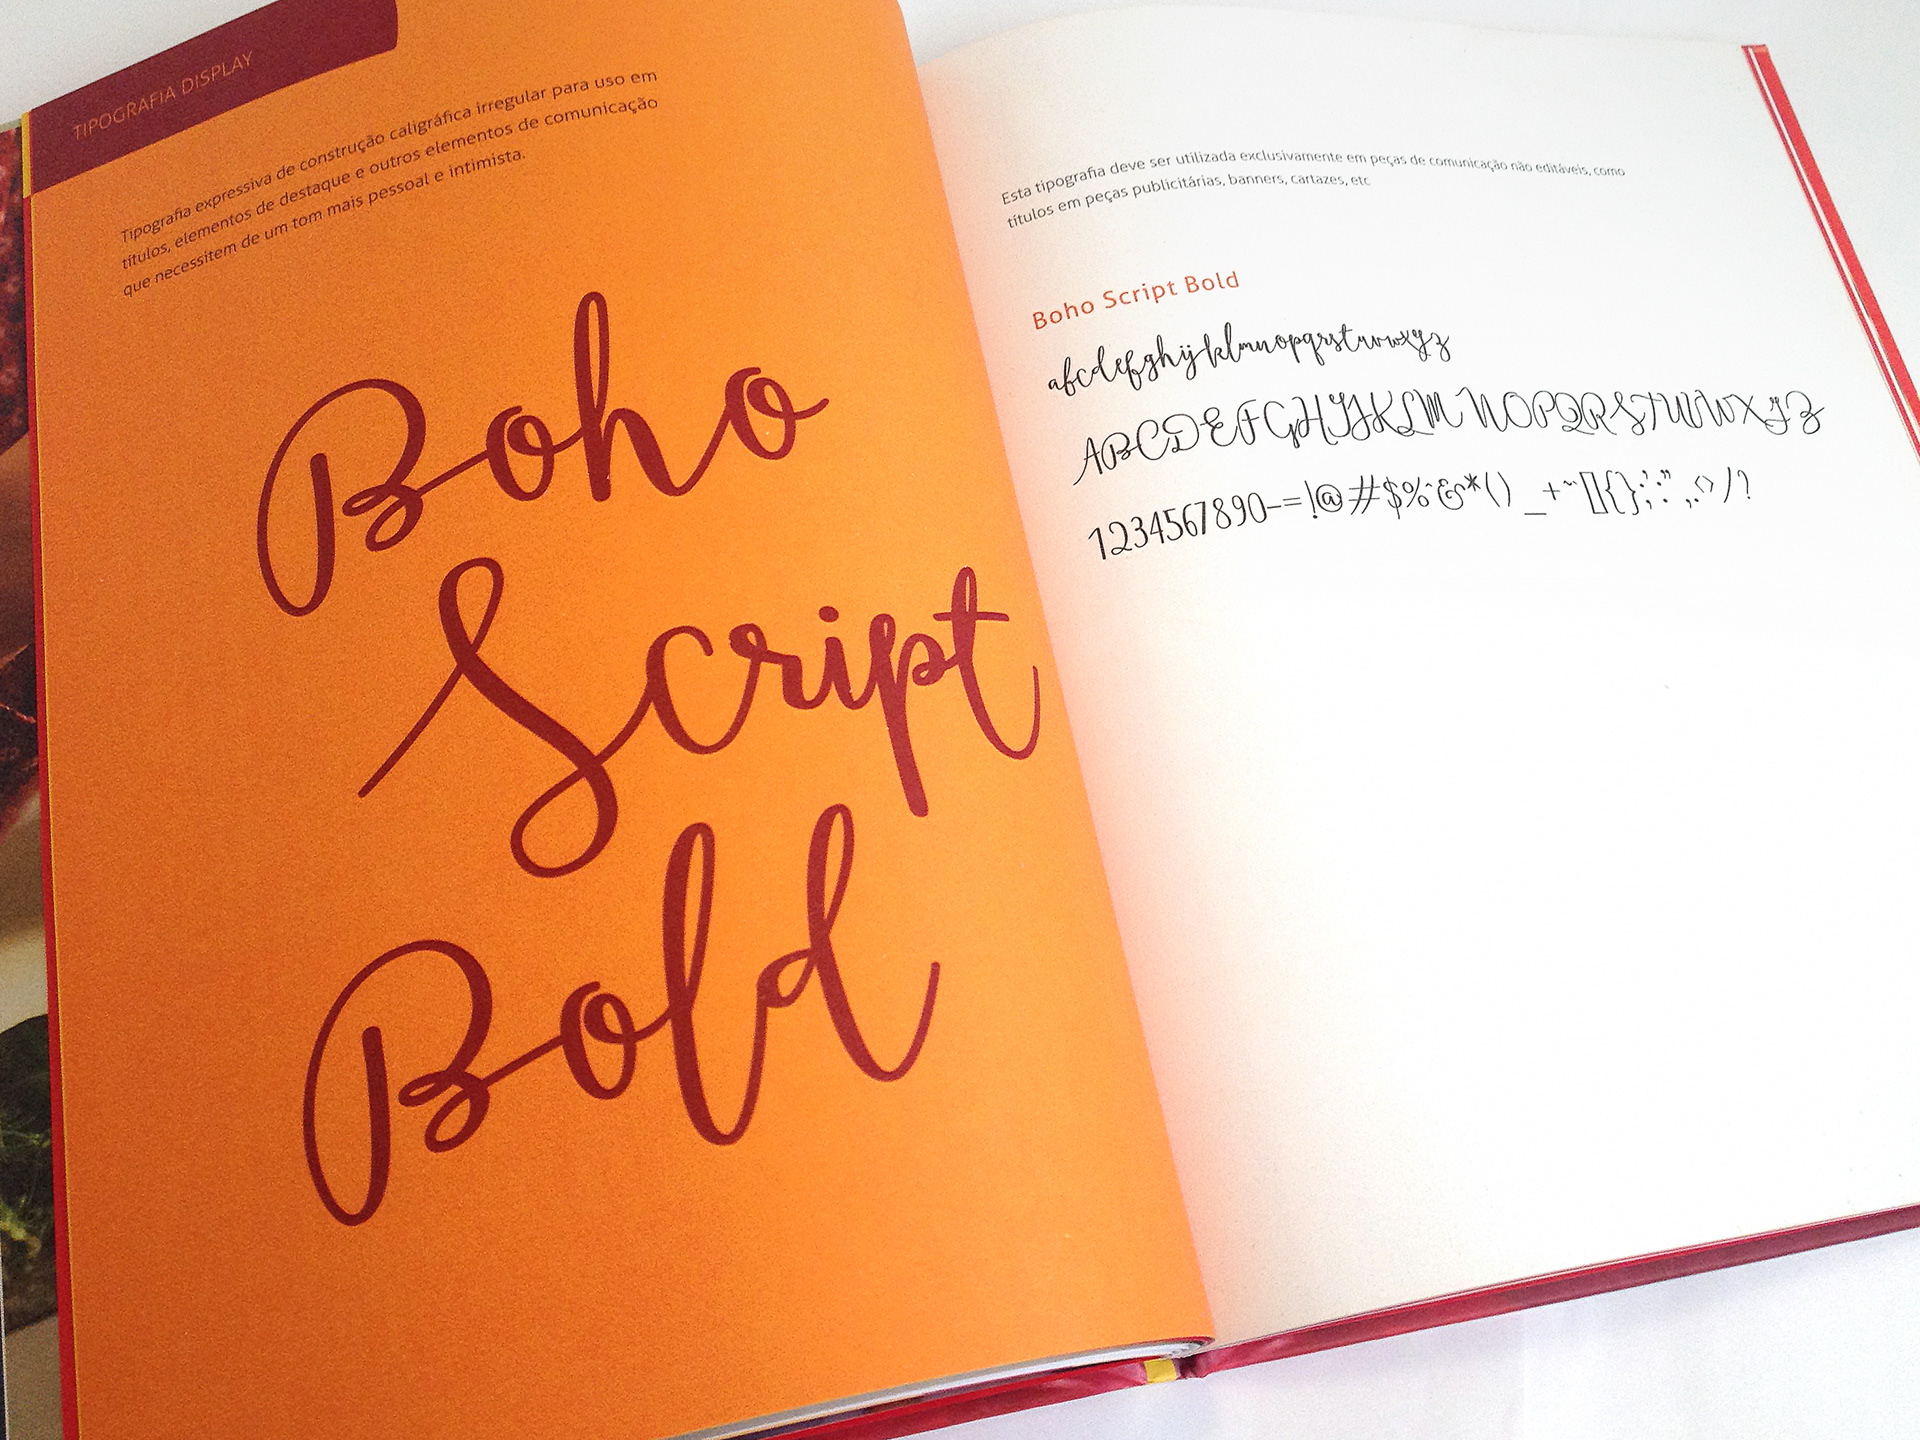 TIPOGRAFIA DISPLAY
Tipografia expressiva de construção caligráfica irregular para uso em
títulos, elementos de destaque e outros elementos de comunicação
que necessitem de um tom mais pessoal e intimista.
Boho
Script
Bold
Esta tipografia deve ser utilizada exclusivamente em peças de comunicação não editáveis, como
títulos em peças publicitárias, banners, cartazes, etc
Boho Script Bold
abcdefghijklmnopqrstuvwxyz
ABCDEFGHIJKLMNOPQRSTUVWXYZ
1234567890-=!@#$%^&*()_+~[]{};':",.<>/?